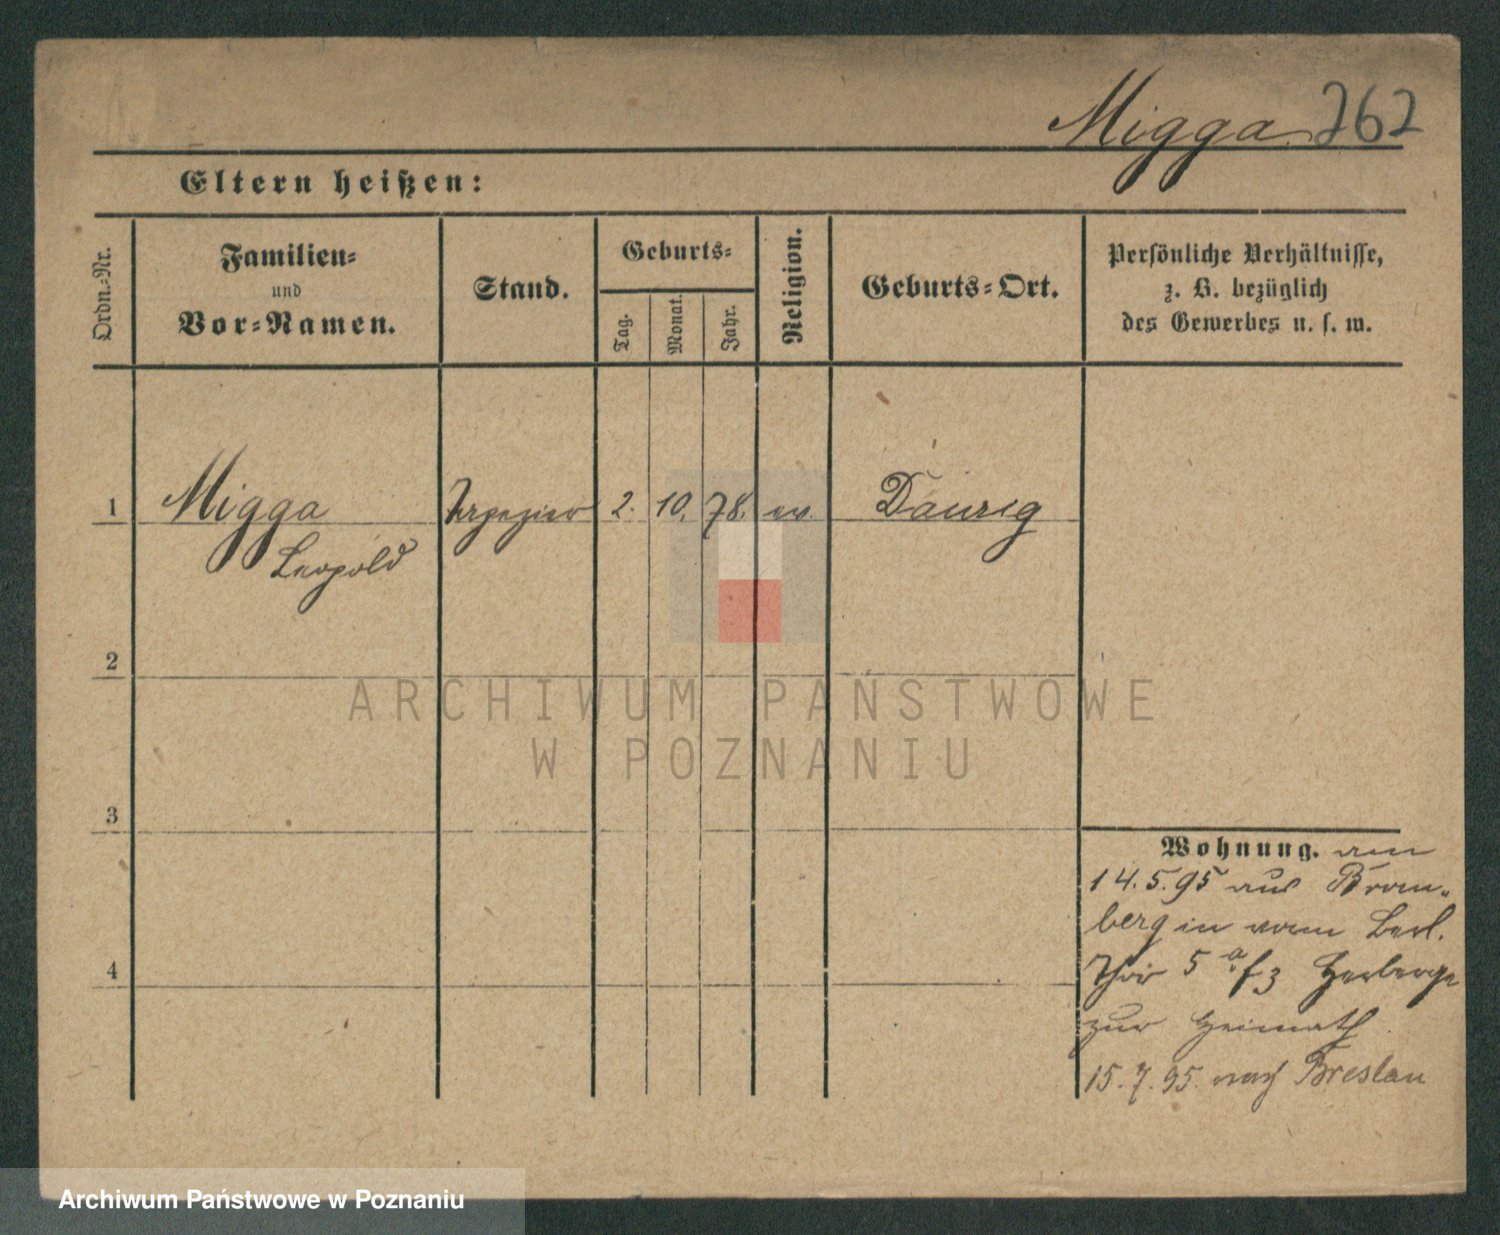 Migga 262
Eltern heißen:
Ordn.-Nr.
Familien-
und
Vor-Namen.
Stand.
Geburts-
Tag.
Monat.
Jahr.
Religion.
Geburts-Ort.
Persönliche Verhältnisse,
z. B. bezüglich
des Gewerbes u. s. w.
1 Migga Tapezier 2. 10. 78. ev. Danzig
Leopold
2
3
4
Wohnung. am
14.5.95 aus Brom-
berg in vorm Berl.
Thor 5 a Herberge
zur Heimath
15.7.95. nach Breslau
ARCHIWUM PAŃSTWOWE
W POZNANIU
Archiwum Państwowe w Poznaniu